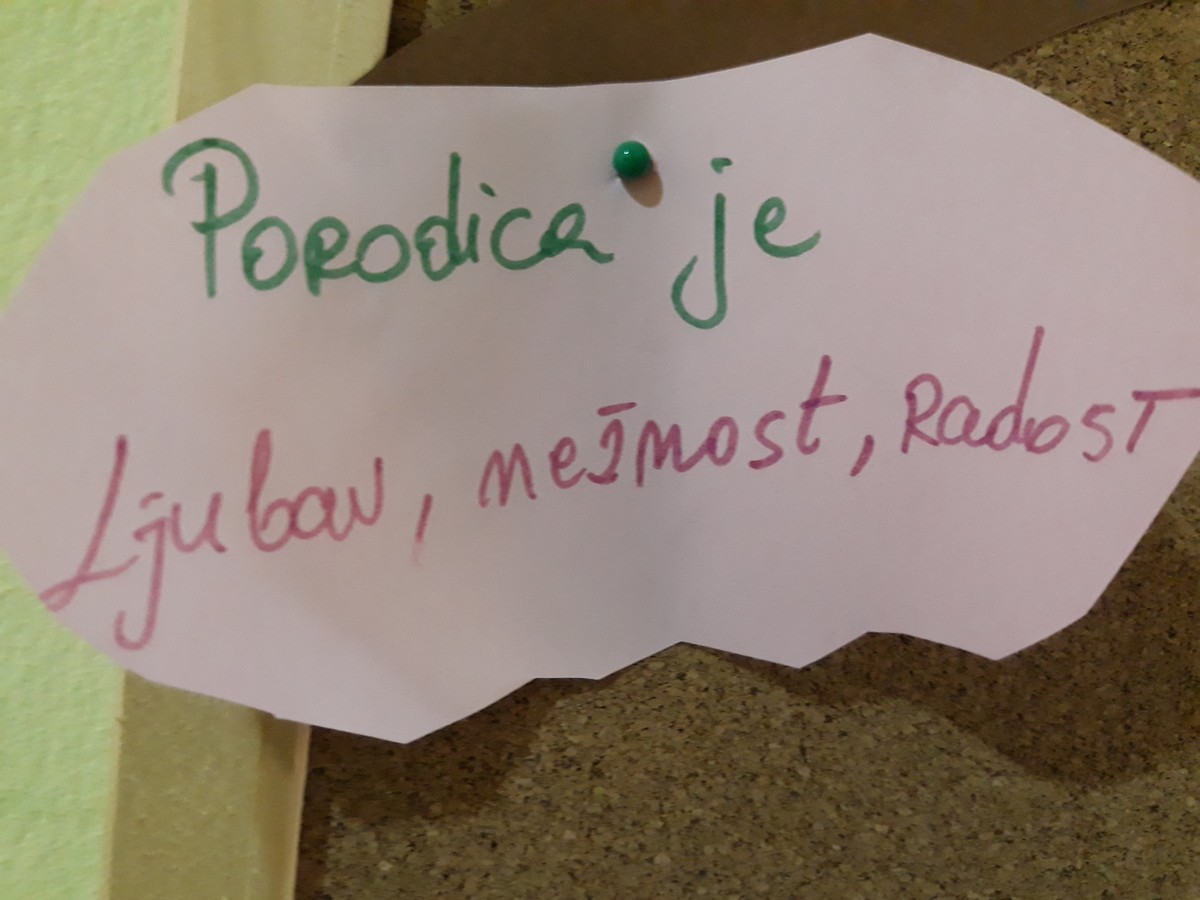 Porodica je
Ljubav, nežnost, Radost